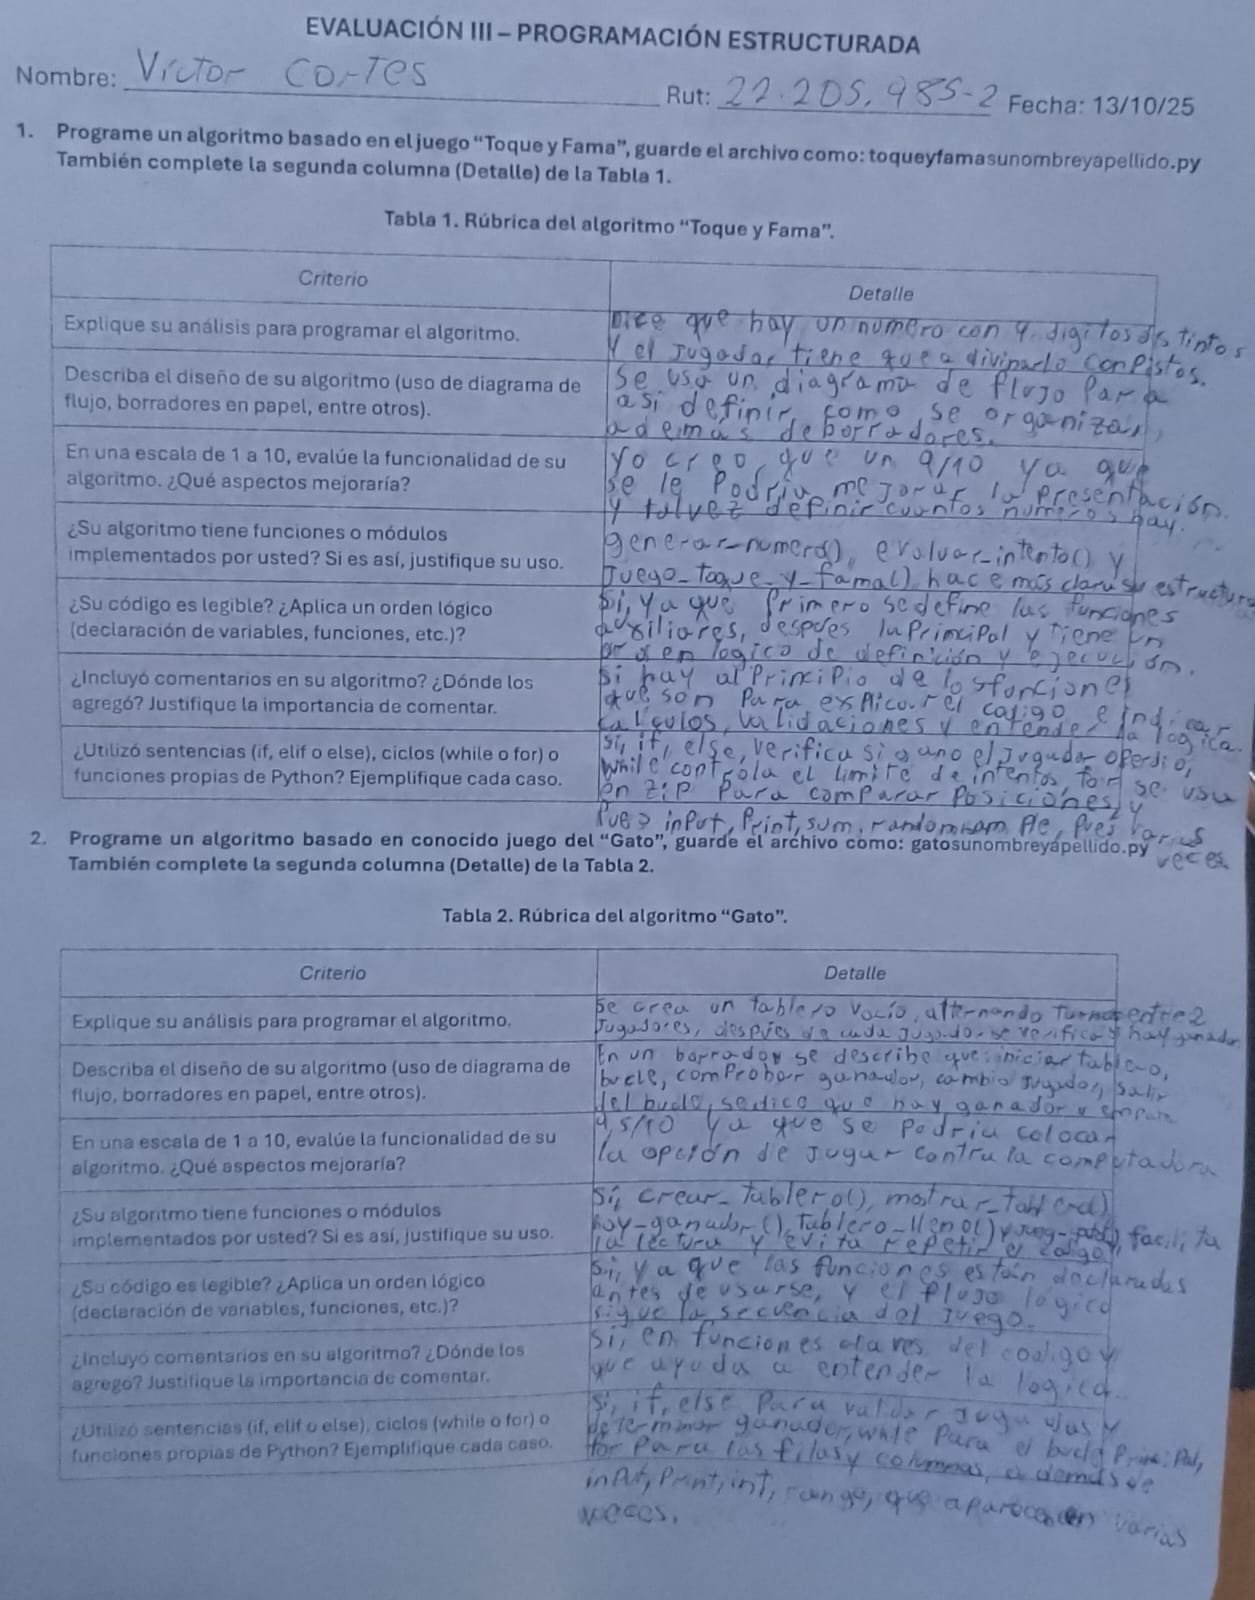 EVALUACIÓN III – PROGRAMACIÓN ESTRUCTURADA
Nombre: Victor Cortes
Rut: 22.205.985-2 Fecha: 13/10/25
1. Programe un algoritmo basado en el juego “Toque y Fama”, guarde el archivo como: toqueyfamasunombreyapellido.py
También complete la segunda columna (Detalle) de la Tabla 1.
Tabla 1. Rúbrica del algoritmo “Toque y Fama”.
Criterio
Detalle
Explique su análisis para programar el algoritmo.
Dice que hay un numero con 4 digitos distintos
y el jugador tiene que adivinarlo con pistas.
Describa el diseño de su algoritmo (uso de diagrama de
flujo, borradores en papel, entre otros).
Se usa un diagrama de flujo para
asi definir como se organizar,
ademas de borradores.
En una escala de 1 a 10, evalúe la funcionalidad de su
algoritmo. ¿Qué aspectos mejoraría?
yo creo que un 9/10 ya que
se le podria mejorar la presentación.
y talvez definir cuantos numeros hay.
¿Su algoritmo tiene funciones o módulos
implementados por usted? Si es así, justifique su uso.
generar-numero(), evaluar-intento() y
Juego-toque-y-fama(), hace mas clara su estructura
¿Su código es legible? ¿Aplica un orden lógico
(declaración de variables, funciones, etc.)?
si, ya que primero se define las funciones
auxiliares, despues la principal y tiene un
orden logico de definición y ejecución.
¿Incluyó comentarios en su algoritmo? ¿Dónde los
agregó? Justifique la importancia de comentar.
si hay al principio de los funciones
que son para explicar el codigo e indicar
calculos, validaciones y entender la logica.
¿Utilizó sentencias (if, elif o else), ciclos (while o for) o
funciones propias de Python? Ejemplifique cada caso.
si, if, else, verifica si gano el jugador o perdio,
while controla el limite de intentos, for se usa
en zip para comparar posiciones, y
pues input, print, sum, random, pues varias
veces.
2. Programe un algoritmo basado en conocido juego del “Gato”, guarde el archivo como: gatosunombreyapellido.py
También complete la segunda columna (Detalle) de la Tabla 2.
Tabla 2. Rúbrica del algoritmo “Gato”.
Criterio
Detalle
Explique su análisis para programar el algoritmo.
se crea un tablero vacío, alternando turnos entre 2
jugadores, despues de cada jugador se verifica si hay ganador
Describa el diseño de su algoritmo (uso de diagrama de
flujo, borradores en papel, entre otros).
En un borrador se describe que: iniciar tablero,
bucle, comprobar ganador, cambio jugador, salir
del bucle, se dice que hay ganador y empate
En una escala de 1 a 10, evalúe la funcionalidad de su
algoritmo. ¿Qué aspectos mejoraría?
9,5/10 ya que se podria colocar
la opción de jugar contra la computadora
¿Su algoritmo tiene funciones o módulos
implementados por usted? Si es así, justifique su uso.
Si, crear-tablero(), mostrar-tablero()
hay-ganador(), tablero-lleno() y facilita
la lectura y evita repetir el codigo
¿Su código es legible? ¿Aplica un orden lógico
(declaración de variables, funciones, etc.)?
si, ya que las funciones están declaradas
antes de usarse, y el flujo logico
sigue la secuencia del juego.
¿Incluyó comentarios en su algoritmo? ¿Dónde los
agregó? Justifique la importancia de comentar.
si, en funciones claves del codigo y
que ayuda a entender la logica.
¿Utilizó sentencias (if, elif o else), ciclos (while o for) o
funciones propias de Python? Ejemplifique cada caso.
si, if, else para validar jugadas y
determinar ganador, while para el bucle principal,
for para las filas y columnas, ademas de
input, print, int, range, que aparecen varias
veces.